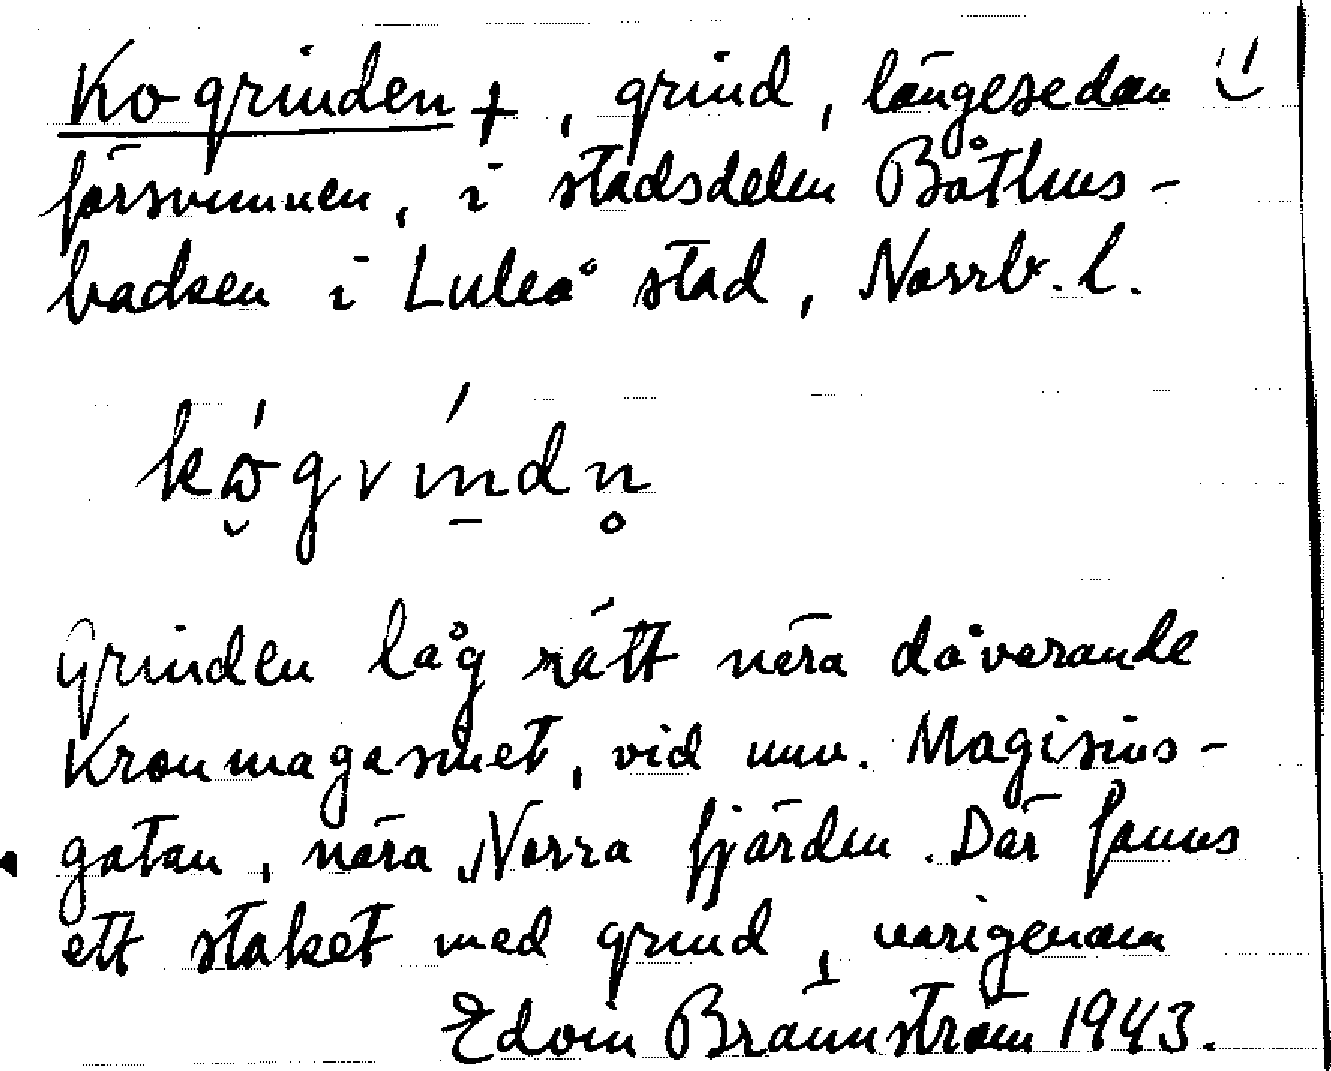 Kogrinden +, grind, längesedan
försvunnen, i stadsdelen Båthus-
backen i Luleå stad, Norrb. l.
Grinden låg rätt nära dåvarande
Kronmagasinet, vid nuv. Magisius-
gatan, nära Norra fjärden. Där fanns
ett staket med grind, varigenom
Edvin Brännström 1943.